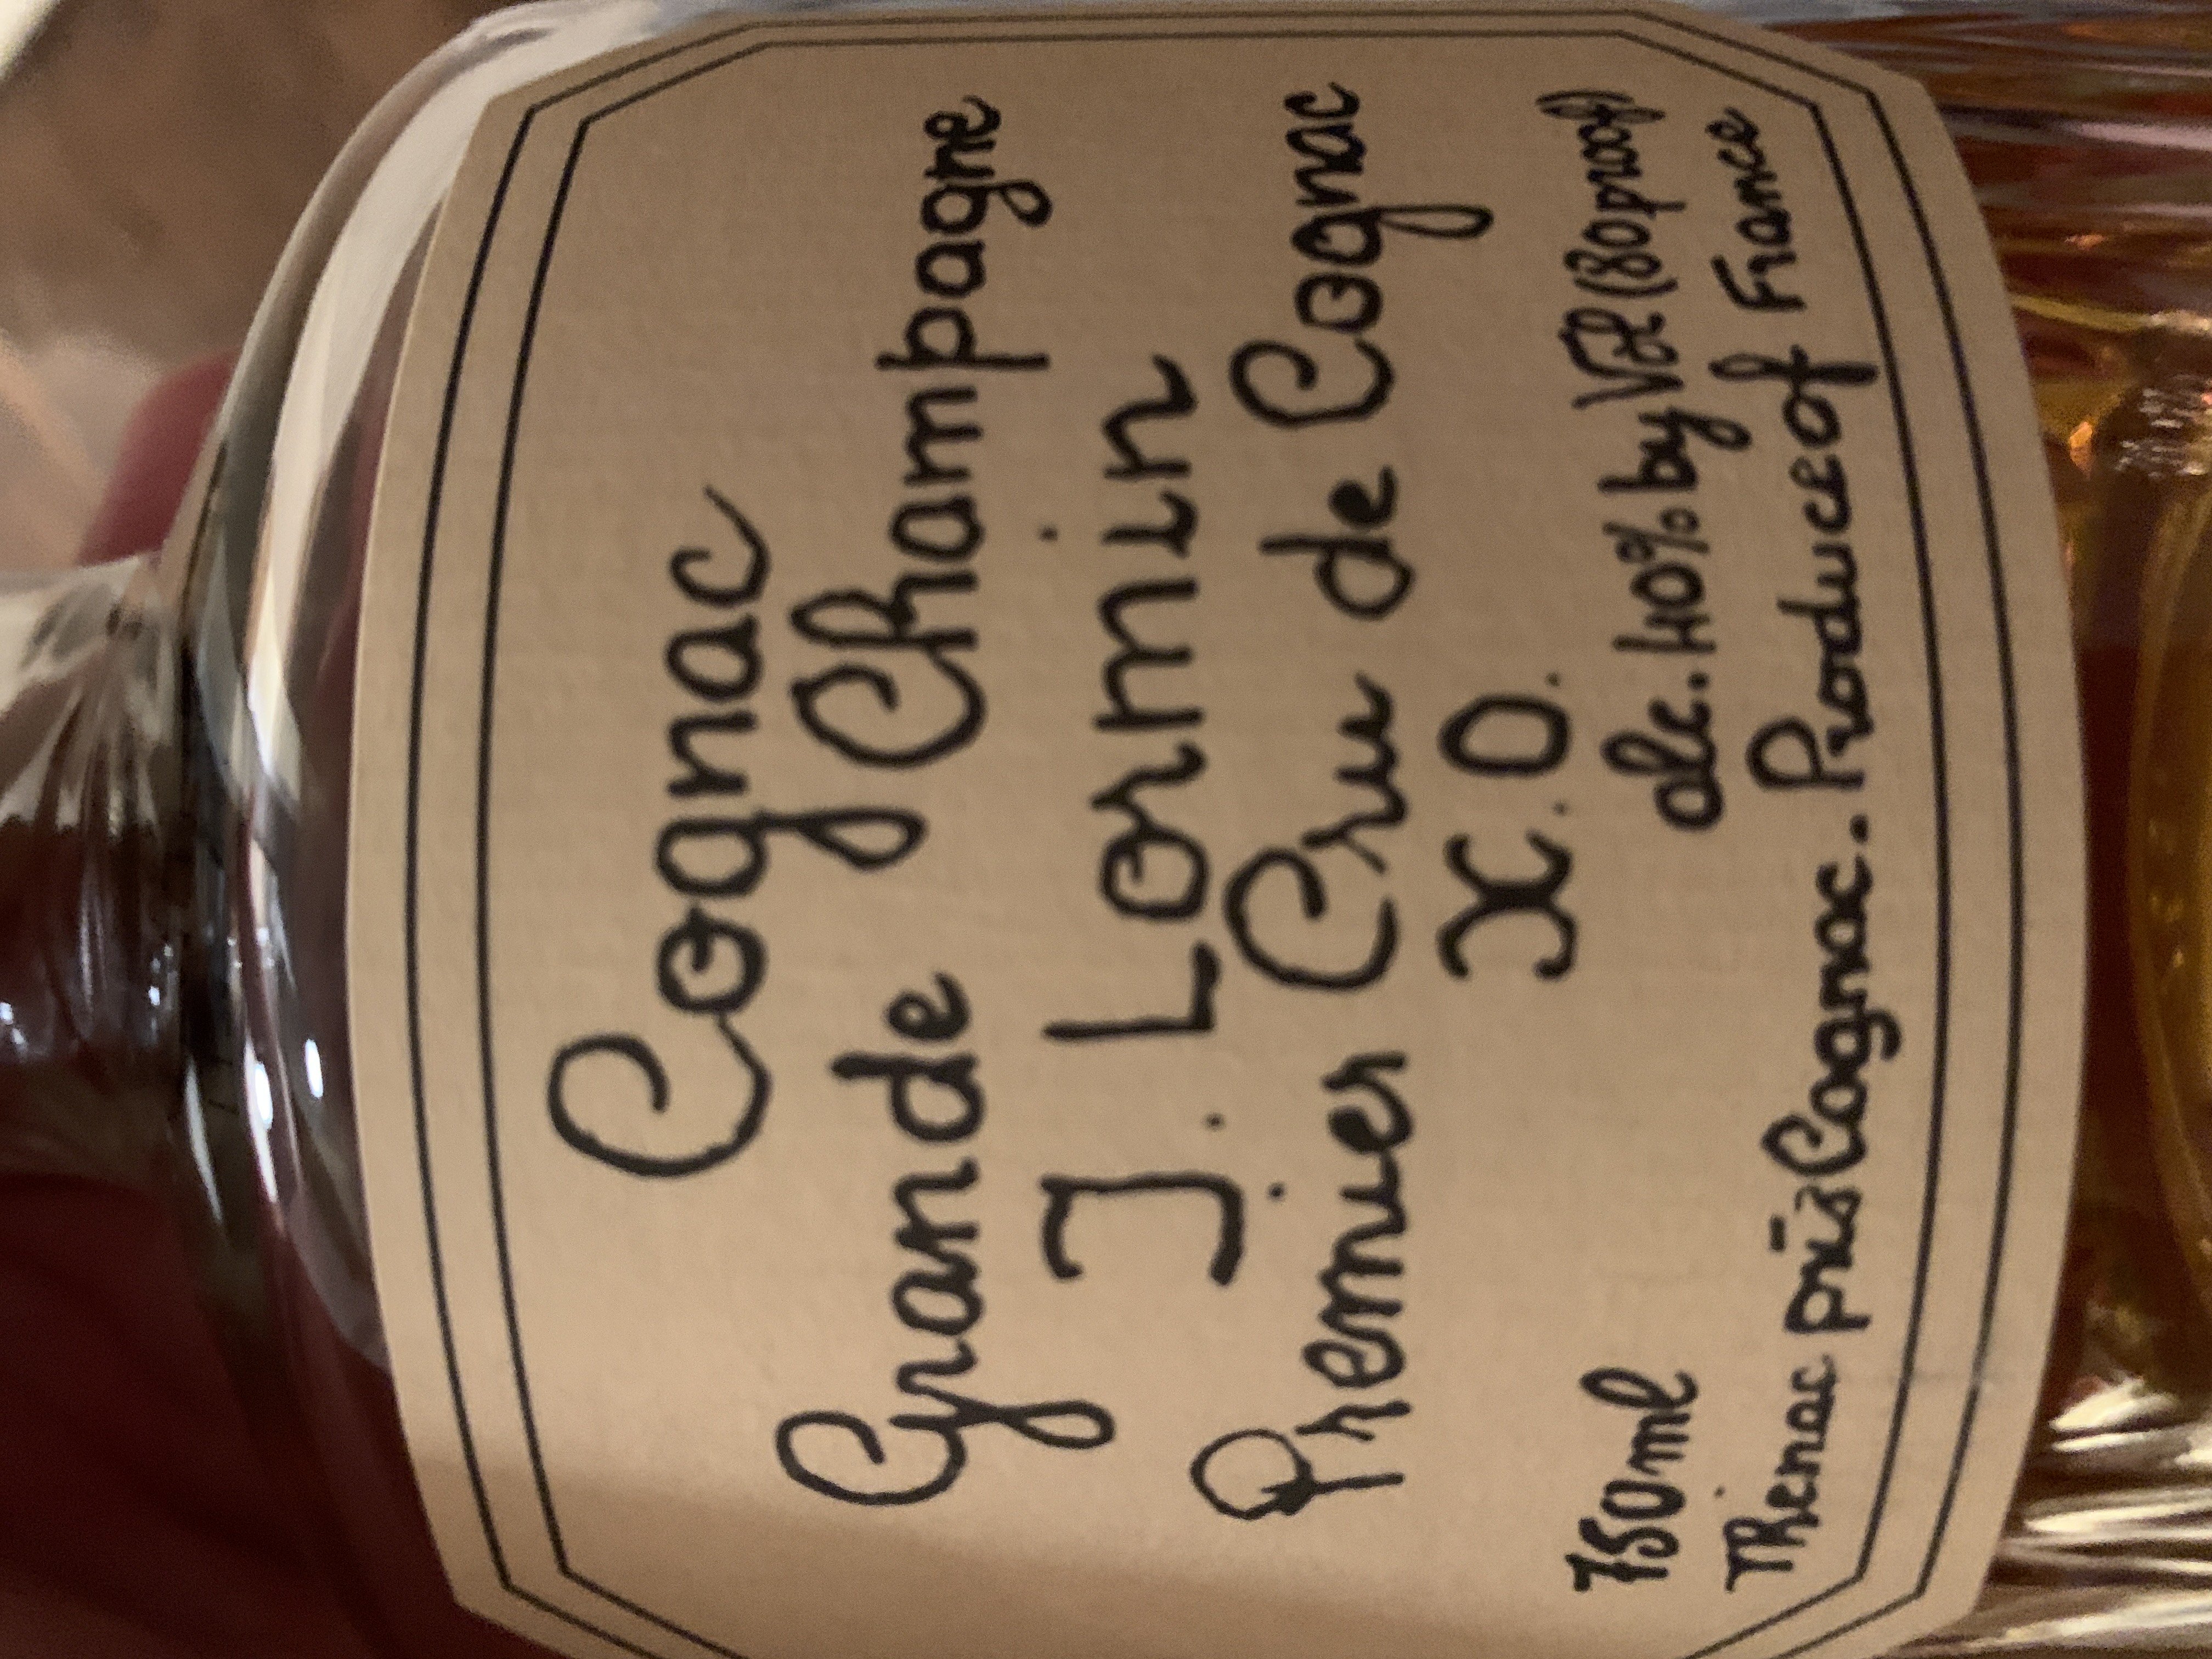 Cognac
Grande Champagne
J. Lormin
Premier Cru de Cognac
X.O.
750ml alc. 40% by Vol (80proof)
Thenac près Cognac. Produce of France